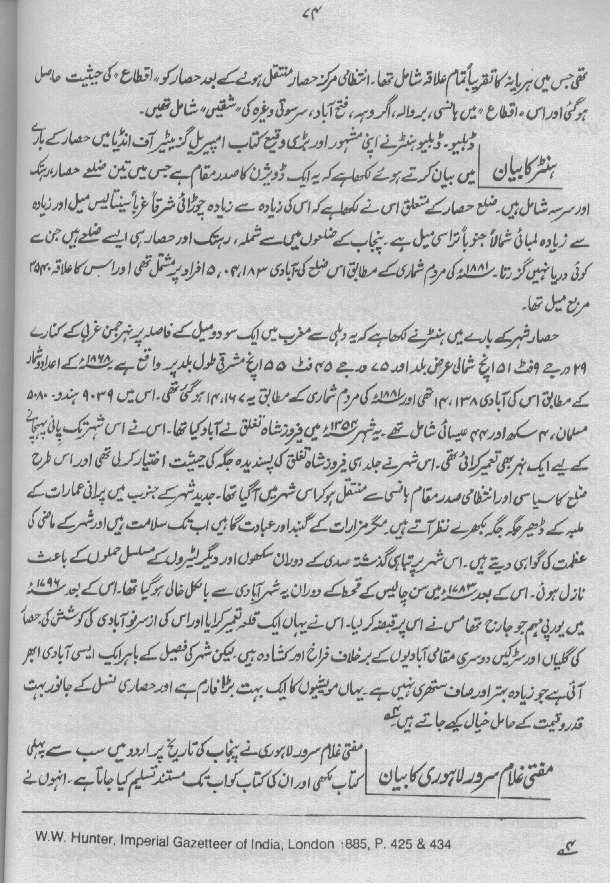 ۷۴
تھی جس میں ہریانہ کا تقریباً تمام علاقہ شامل تھا۔ انتظامی مرکز حصار منتقل ہونے کے بعد حصار کو "اقطاع" کی حیثیت حاصل
ہو گئی اور اس "اقطاع" میں ہانسی، بردالہ، اگروہہ، فتح آباد، سرسوتی وغیرہ کی "شقیں" شامل تھیں۔
ہنٹر کا بیان
ڈبلیو۔ ڈبلیو ہنٹر نے اپنی مشہور اور بڑی وقیع کتاب امپیریل گزیٹیر آف انڈیا میں حصار کے بارے
میں بیان کرتے ہوئے لکھا ہے کہ یہ ایک ڈویژن کا صدر مقام ہے جس میں تین ضلعے حصار، رہتک
اور سرسہ شامل ہیں۔ ضلع حصار کے متعلق اس نے لکھا ہے کہ اس کی زیادہ سے زیادہ چوڑائی شرقاً غرباً سینتالیس میل اور زیادہ
سے زیادہ لمبائی شمالاً جنوباً تراسی میل ہے۔ پنجاب کے ضلعوں میں سے شملہ، رہتک اور حصار ہی ایسے ضلعے ہیں جن سے
کوئی دریا نہیں گزرتا۔ ۱۸۸۱ء کی مردم شماری کے مطابق اس ضلع کی آبادی ۵،۰۴،۱۸۳ افراد پر مشتمل تھی اور اس کا علاقہ ۳۵۴۰
مربع میل تھا۔
حصار شہر کے بارے میں ہنٹر نے لکھا ہے کہ یہ دہلی سے مغرب میں ایک سو دو میل کے فاصلہ پر نہر جمن غربی کے کنارے
۲۹ درجے ۹ فٹ ۵۱ انچ شمالی عرض بلد اور ۷۵ درجے ۴۵ فٹ ۵۵ انچ مشرقی طول بلد پر واقع ہے ۱۸۶۸ء کے اعداد و شمار
کے مطابق اس کی آبادی ۱۴،۱۳۸ تھی اور ۱۸۸۱ء کی مردم شماری کے مطابق یہ ۱۴،۱۶۷ ہو گئی تھی۔ اس میں ۹۰۳۹ ہندو۔ ۵۰۸۰
مسلمان، ۴ سکھ اور ۴۴ عیسائی شامل تھے۔ یہ شہر ۱۳۵۴ء میں فیروز شاہ تغلق نے آباد کیا تھا۔ اس نے اس شہر تک پانی پہنچانے
کے لیے ایک نہر بھی تعمیر کرائی تھی۔ اس شہر نے جلد ہی فیروز شاہ تغلق کی پسندیدہ جگہ کی حیثیت اختیار کر لی تھی اور اس طرح
ضلع کا سیاسی اور انتظامی صدر مقام ہانسی سے منتقل ہو کر اس شہر میں آ گیا تھا۔ جدید شہر کے جنوب میں پرانی عمارات کے
ملبہ کے ڈھیر جگہ جگہ بکھرے نظر آتے ہیں۔ مگر مزارات کے گنبد اور عبادت گاہیں اب تک سلامت ہیں اور شہر کے ماضی کی
عظمت کی گواہی دیتے ہیں۔ اس شہر پر تباہی گذشتہ صدی کے دوران سکھوں اور دیگر لٹیروں کے مسلسل حملوں کے باعث
نازل ہوئی۔ اس کے بعد ۱۷۸۳ء میں سن چالیس کے قحط کے دوران یہ شہر آبادی سے بالکل خالی ہو گیا تھا۔ اس کے بعد ۱۷۹۶ء
میں یورپی مہم جو جارج تھامس نے اس پر قبضہ کر لیا۔ اس نے یہاں ایک قلعہ تعمیر کرایا اور اس کی از سر نو آبادی کی کوشش کی حصار
کی گلیاں اور سڑکیں دوسری مقامی آبادیوں کے برخلاف فراخ اور کشادہ ہیں۔ لیکن شہر کی فصیل کے باہر ایک ایسی آبادی ابھر
آئی ہے جو زیادہ بہتر اور صاف ستھری نہیں ہے۔ یہاں مویشیوں کا ایک بہت بڑا فارم ہے اور حصاری نسل کے جانور بہت
قدر و قیمت کے حامل خیال کیے جاتے ہیں۔ ۴
مفتی غلام سرور لاہوری کا بیان
مفتی غلام سرور لاہوری نے پنجاب کی تاریخ پر اردو میں سب سے پہلی
کتاب لکھی اور ان کی کتاب کو اب تک مستند تسلیم کیا جاتا ہے۔ انہوں نے
W.W. Hunter, Imperial Gazetteer of India, London 1885, P. 425 & 434 ۴